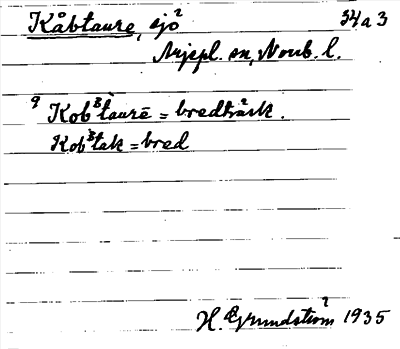 Kåbtaure, sjö² 34a3
Arjepl. sn, Norrb. l.
9 Kobᴮtaurē = bredträsk.
Kobᴮtak = bred
H. Grundström 1935